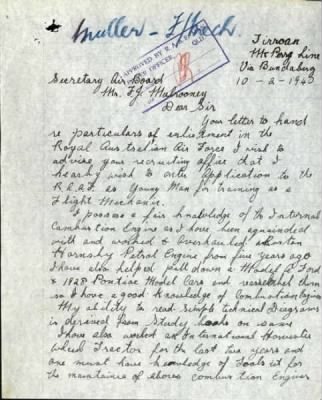 Muller - F/Mech.
Tirroan
Mt Perry Line
Via Bundaberg
10-2-1940
APPROVED BY R.A.A.F.
OFFICER
QLD
Secretary Air Board
Mr. F.J. Mulrooney
Dear Sir
Your letter to hand
re particulars of enlistment in the
Royal Australian Air Force I wish to
advise your recruiting office that I
hearby wish to enter Application to the
R.A.A.F. as Young Man for training as a
Flight Mechanic.
I possess a fair knowledge of the Internal
Combustion Engine as I have been aquainded
with and worked & Overhauled a
Hornsby Petrol Engine from five years ago
I have also helped pull down a Model A Ford
& 1928 Pontiac Model Cars and reassembled them
so I have a good knowledge of Combustion Engines
My ability to read simple Technical Diagrams
is derived from Study books on same
I have also worked an International Harvester
wheel Tractor for the last two years and
one must have knowledge of Tools it for
the maintaince of above combustion Engines